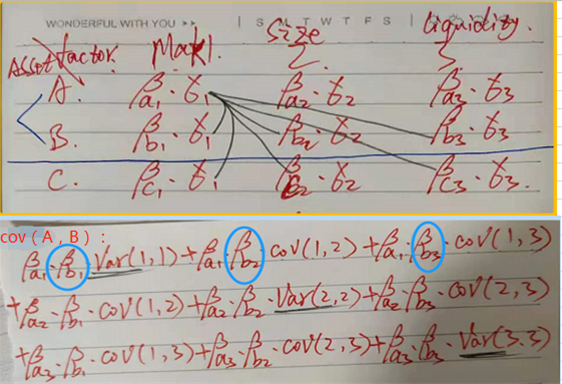 WONDERFUL WITH YOU ▸▸ | S M T W T F S |
Asset factor. Makt. Size liquidity.
1. 2. 3.
A. βa1·σ1 βa2·σ2 βa3·σ3
B. βb1·σ1 βb2·σ2 βb3·σ3
C. βc1·σ1 βc2·σ2 βc3·σ3.
cov(A,B):
βa1·βb1·Var(1,1)+βa1·βb2·cov(1,2)+βa1·βb3·cov(1,3)
+βa2·βb1·cov(1,2)+βa2·βb2·Var(2,2)+βa2·βb3·cov(2,3)
+βa3·βb1·cov(1,3)+βa3·βb2·cov(2,3)+βa3·βb3·Var(3.3)